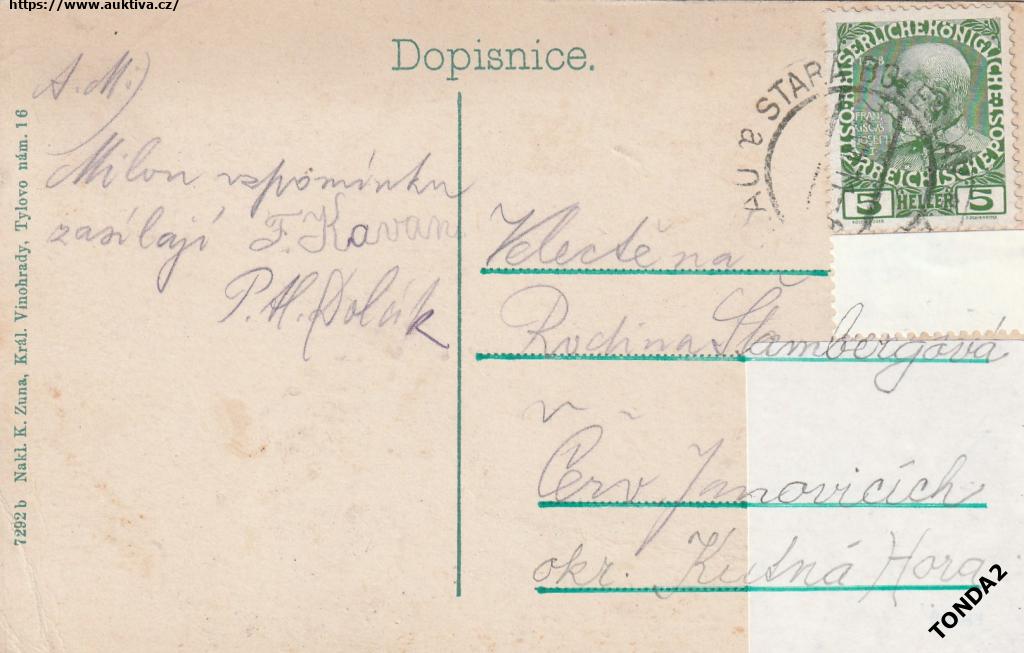 https://www.auktiva.cz/
Dopisnice.
A. M.)
Milou vzpomínku
zasílají F. Kavan
P. H. Dolák
7292 b Nakl. K. Zuna, Král. Vinohrady, Tylovo nám. 16
STARÁ
KAISERLICHE KÖNIGLICHE
ÖSTERREICHISCHE POST
5 HELLER 5
Velectěná
Rodina Štambergová
v
Červ Janovicích
okr. Kutná Hora
TONDA2